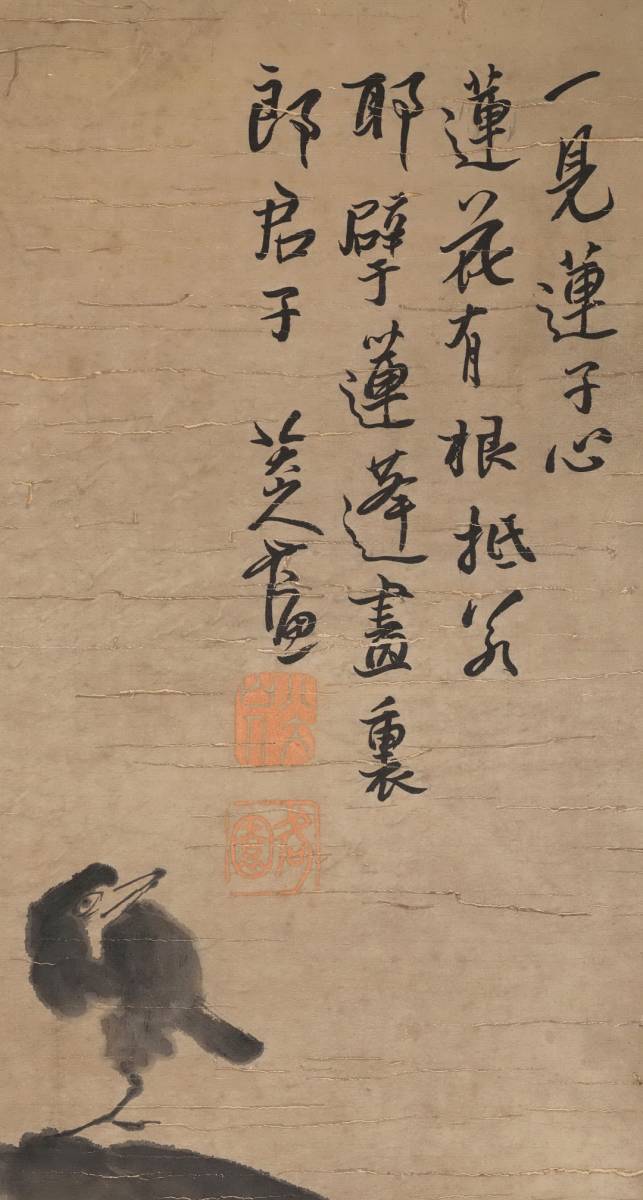 一見蓮子心
蓮花有根抵若
耶擘蓮蓬盡裏
郎君子 八大山人畫